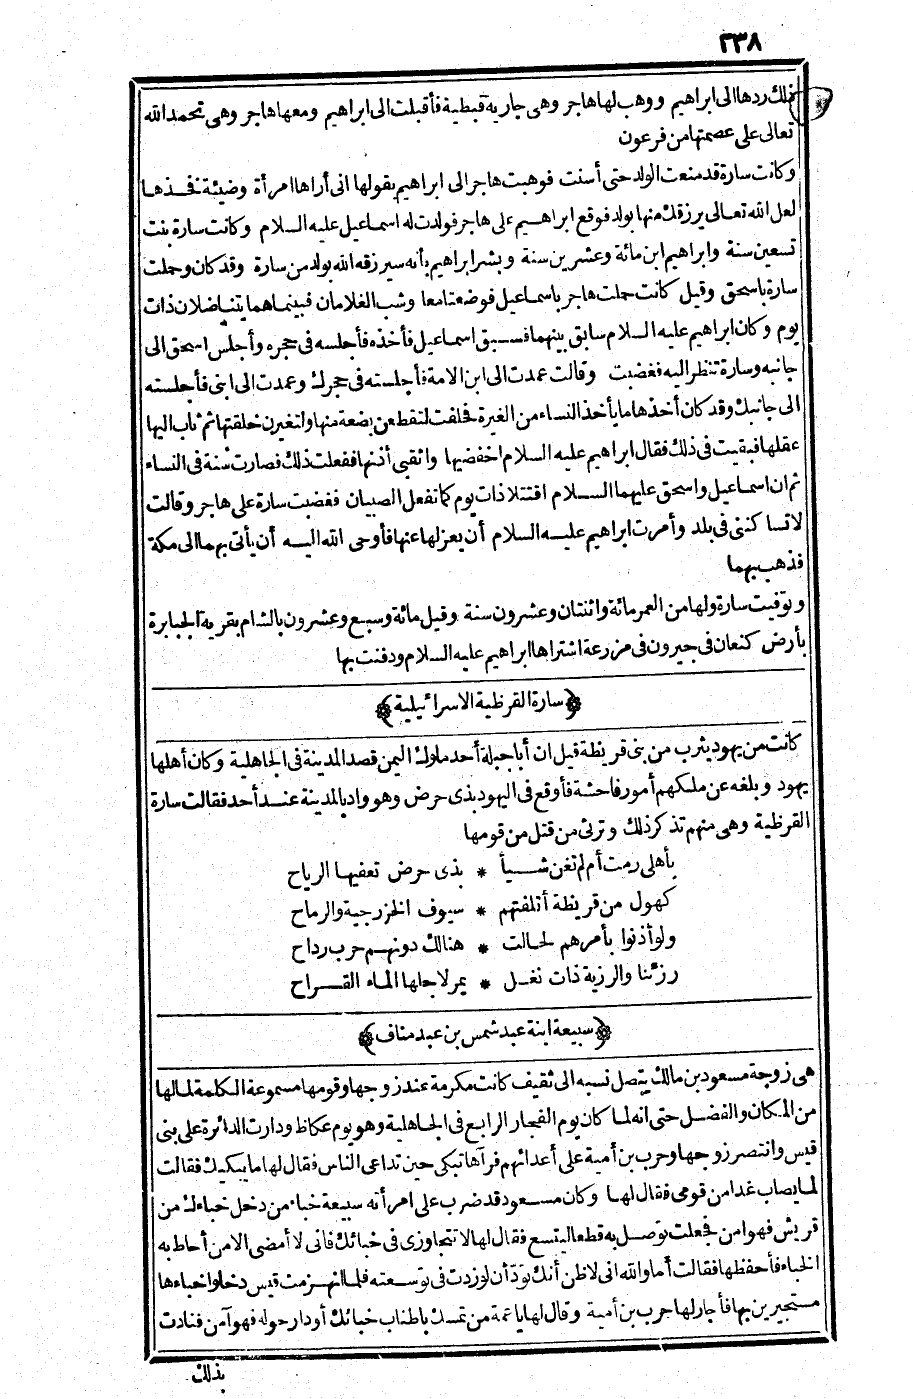 ٢٣٨
ذلك ردها الى ابراهيم ووهب لها هاجر وهى جارية قبطية فأقبلت الى ابراهيم ومعها هاجر وهى تحمد الله
تعالى على عصمتها من فرعون
وكانت سارة قد منعت الولد حتى أسنت فوهبت هاجر الى ابراهيم بقولها انى أراها امرأة وضيئة فخذها
لعل الله تعالى يرزقك منها بولد فوقع ابراهيم على هاجر فولدت له اسماعيل عليه السلام وكانت سارة بنت
تسعين سنة وابراهيم ابن مائة وعشرين سنة وبشر ابراهيم بأنه سيرزقه الله بولد من سارة وقد كان وحملت
سارة باسحق وقيل كانت حملت هاجر باسماعيل فوضعتا معا وشب الغلامان فبينما هما يتناضلان ذات
يوم وكان ابراهيم عليه السلام سابق بينهما فسبق اسماعيل فأخذه فأجلسه فى حجره وأجلس اسحق الى
جانبه وسارة تنظر اليه فغضبت وقالت عمدت الى ابن الامة فأجلسته فى حجرك وعمدت الى ابنى فأجلسته
الى جانبك وقد كان أخذها ما يأخذ النساء من الغيرة فحلفت لتقطعن بضعة منها ولتغيرن خلقتها ثم ثاب اليها
عقلها فبقيت فى ذلك فقال ابراهيم عليه السلام اخفضيها واثقبى أذنها ففعلت ذلك فصارت سُنة فى النساء
ثم ان اسماعيل واسحق عليهما السلام اقتتلا ذات يوم كما تفعل الصبيان فغضبت سارة على هاجر وقالت
لا تساكننى فى بلد وأمرت ابراهيم عليه السلام أن يعزلها عنها فأوحى الله اليه أن يأتى بهما الى مكة
فذهب بهما
وتوفيت سارة ولها من العمر مائة واثنتان وعشرون سنة وقيل مائة وسبع وعشرون بالشام بقرية الجبابرة
بأرض كنعان فى جيرون فى مزرعة اشتراها ابراهيم عليه السلام ودفنت بها
﴿سارة القرظية الاسرائيلية﴾
كانت من يهود يثرب من بنى قريظة قيل ان أبا جبلة أحد ملوك اليمن قصد المدينة فى الجاهلية وكان أهلها
يهود وبلغه عن ملكهم أمور فاحشة فأوقع فى اليهود بذى حرض وهو واد بالمدينة عند أحد فقالت سارة
القرظية وهى منهم تذكر ذلك وترثى من قتل من قومها
بأهلى رمت أم لم تغن شيأ * بذى حرض تعفيها الرياح
كهول من قريظة أتلفتهم * سيوف الخزرجية والرماح
ولو أذنوا بأمرهم لحالت * هنالك دونهم حرب رداح
رزئنا والرزية ذات نغل * يمر لاجلها الماء القراح
﴿سبيعة ابنة عبد شمس بن عبد مناف﴾
هى زوجة مسعود بن مالك يتصل نسبه الى ثقيف كانت مكرمة عند زوجها وقومها مسموعة الكلمة لما لها
من المكان والفضل حتى انه لما كان يوم الفجار الرابع فى الجاهلية وهو يوم عكاظ ودارت الدائرة على بنى
قيس وانتصر زوجها وحرب بن أمية على أعدائهم فرآها تبكى حين تداعى الناس فقال لها ما يبكيك فقالت
لما يصاب غدا من قومى فقال لها وكان مسعود قد ضرب على امرأته سبيعة خباء من دخل خباءك من
قريش فهو امن فجعلت توصل به قطعا ليتسع فقال لها لا تتجاوزى فى خبائك فانى لا أمضى الا من أحاط به
الخباء فأحفظها فقالت أما والله انى لاظن أنك تود أن لو زدت فى توسعته فلما انهزمت قيس دخلوا خباءها
مستجيرين بها فأجار لها حرب بن أمية وقال لها يا عمة من تمسك باطناب خبائك أو دار حوله فهو آمن فنادت
بذلك